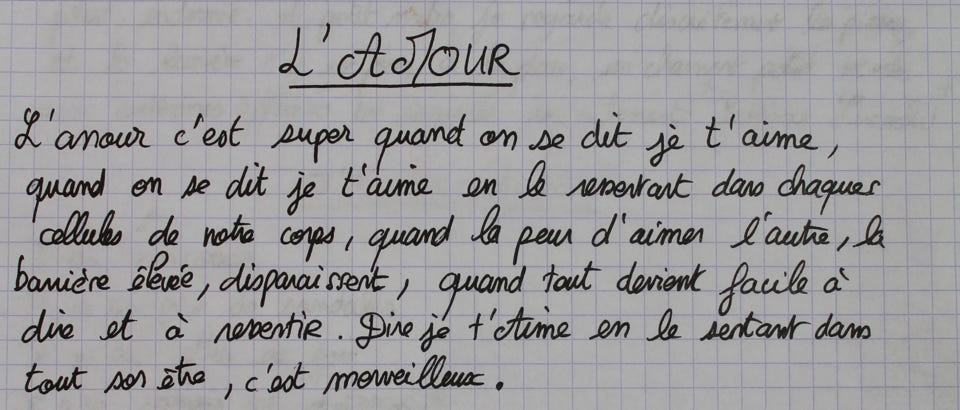 L'AMOUR
L'amour c'est super quand on se dit je t'aime,
quand on se dit je t'aime en le ressentant dans chaques
cellules de notre corps, quand la peur d'aimer l'autre, la
barrière élevée, disparaissent, quand tout devient facile à
dire et à ressentir. Dire je t'Aime en le sentant dans
tout son être, c'est merveilleux.